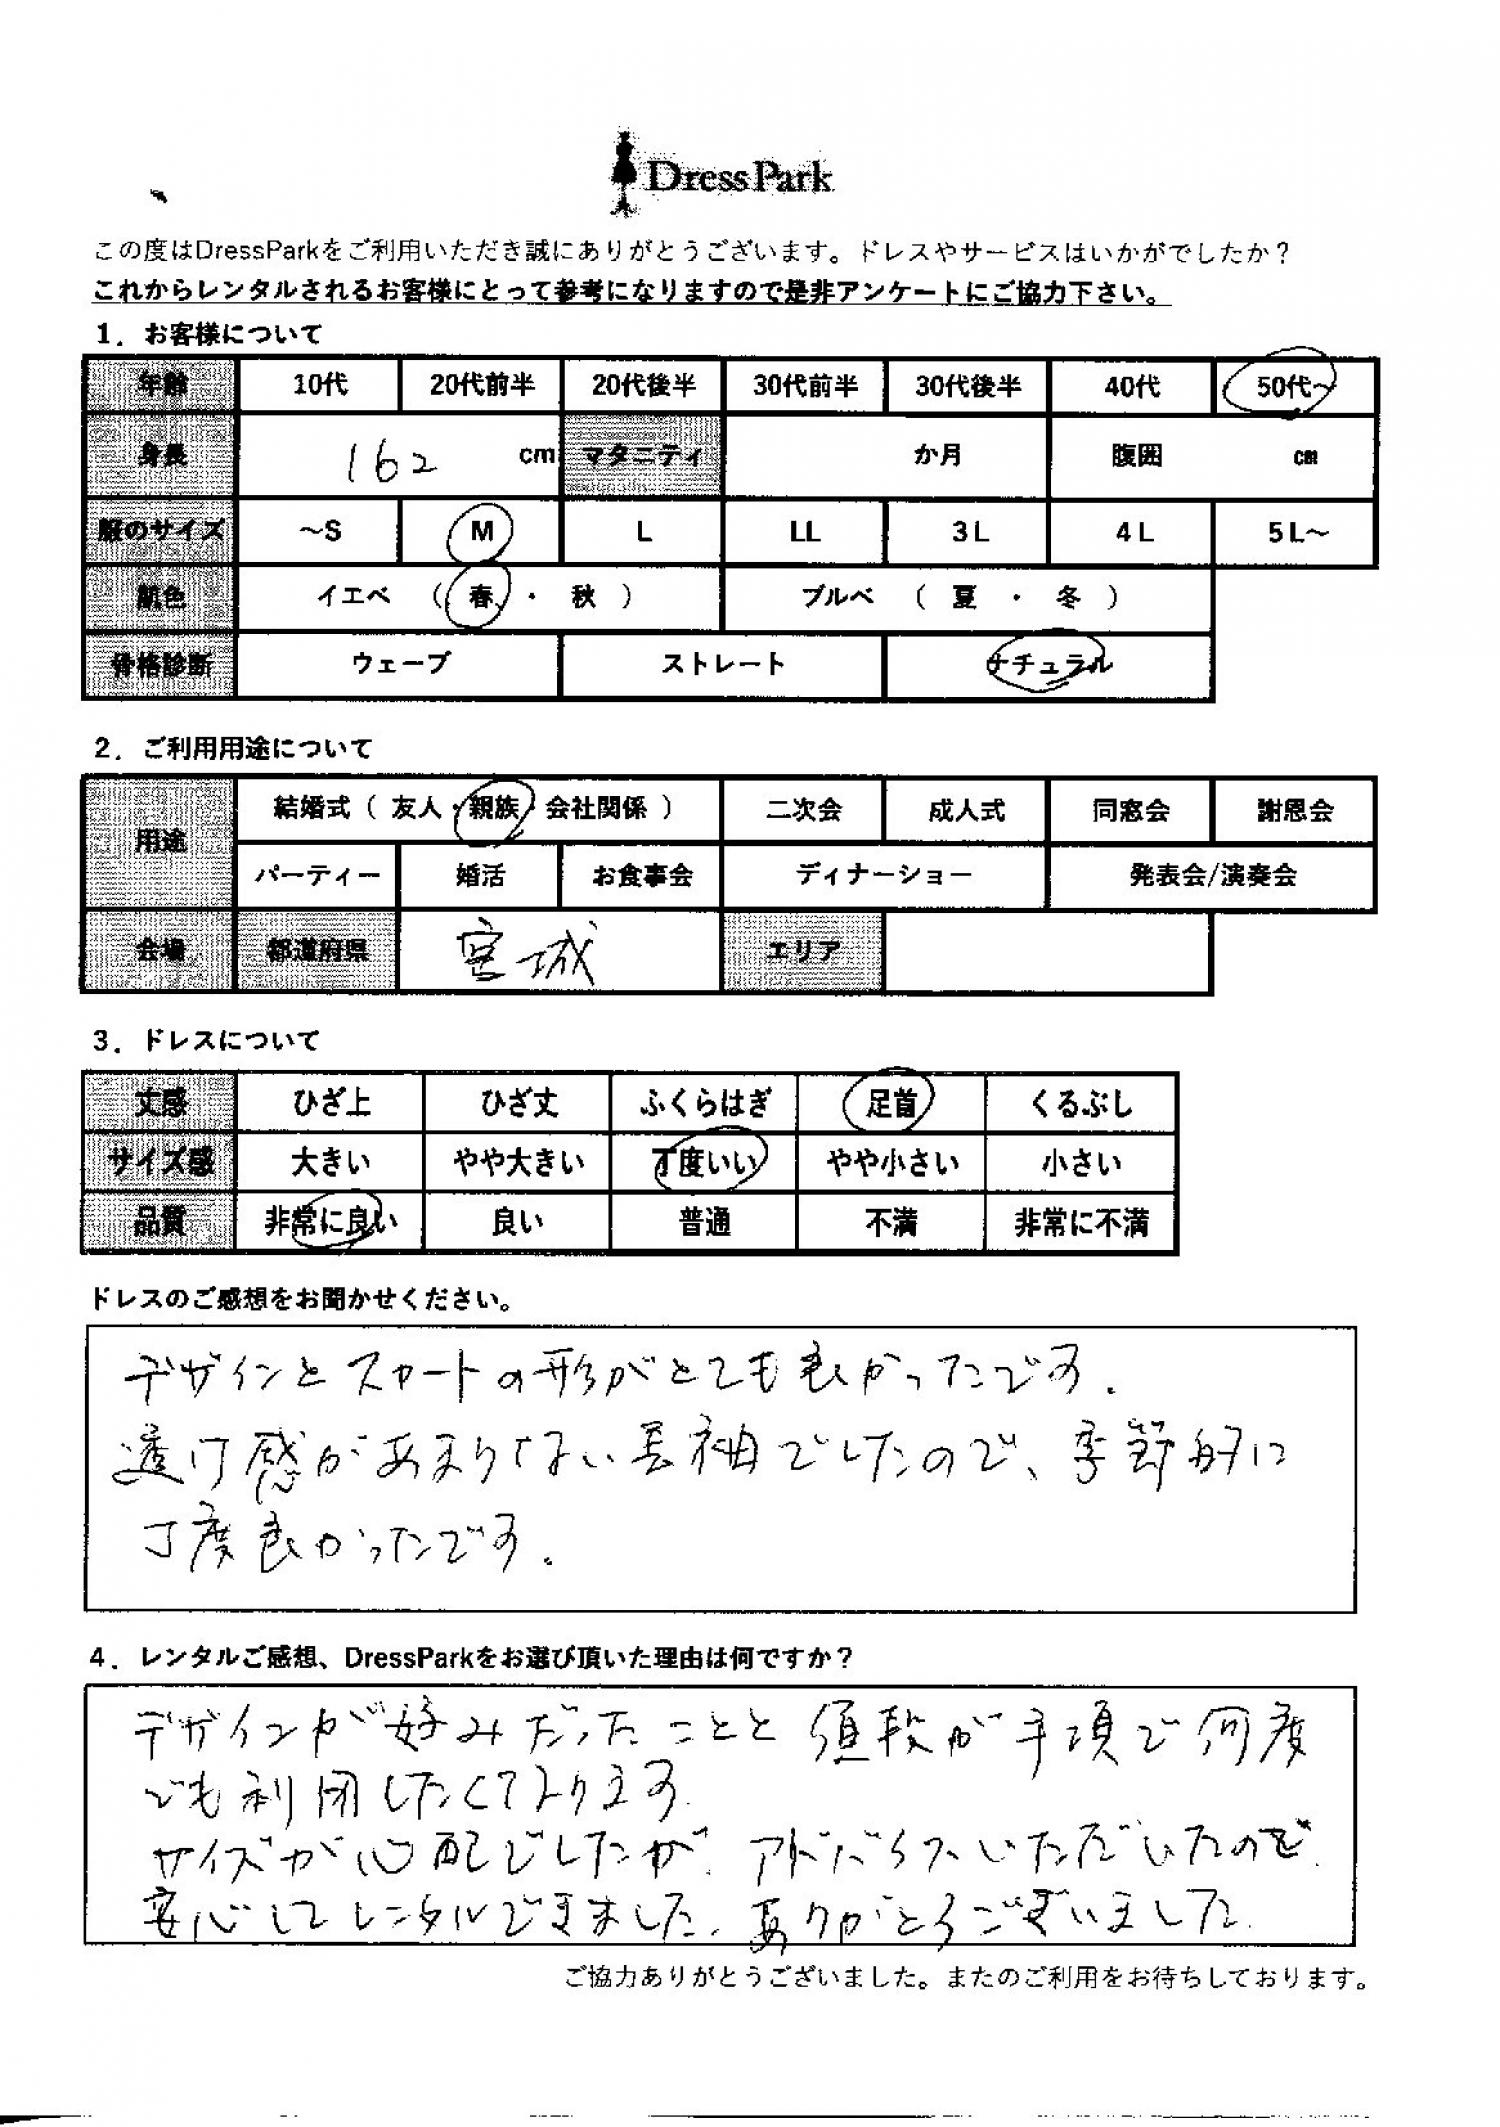 DressPark
この度はDressParkをご利用いただき誠にありがとうございます。ドレスやサービスはいかがでしたか？
これからレンタルされるお客様にとって参考になりますので是非アンケートにご協力下さい。
1．お客様について
年齢 10代 20代前半 20代後半 30代前半 30代後半 40代 50代～
身長 162 cm マタニティ か月 腹囲 cm
服のサイズ ～S M L LL 3L 4L 5L～
肌色 イエベ （ 春 ・ 秋 ） ブルベ （ 夏 ・ 冬 ）
骨格診断 ウェーブ ストレート ナチュラル
2．ご利用用途について
用途 結婚式（ 友人・親族・会社関係 ） 二次会 成人式 同窓会 謝恩会
パーティー 婚活 お食事会 ディナーショー 発表会/演奏会
会場 都道府県 宮城 エリア
3．ドレスについて
丈感 ひざ上 ひざ丈 ふくらはぎ 足首 くるぶし
サイズ感 大きい やや大きい 丁度いい やや小さい 小さい
品質 非常に良い 良い 普通 不満 非常に不満
ドレスのご感想をお聞かせください。
デザインとスカートの形がとても良かったです.
透け感があまりない長袖でしたので、季節的に
丁度良かったです.
4．レンタルご感想、DressParkをお選び頂いた理由は何ですか？
デザインが好みだったことと値段が手頃で何度
でも利用したくております.
サイズが心配でしたが、アドバイスいただいたので.
安心してレンタルできました. ありがとうございました.
ご協力ありがとうございました。またのご利用をお待ちしております。